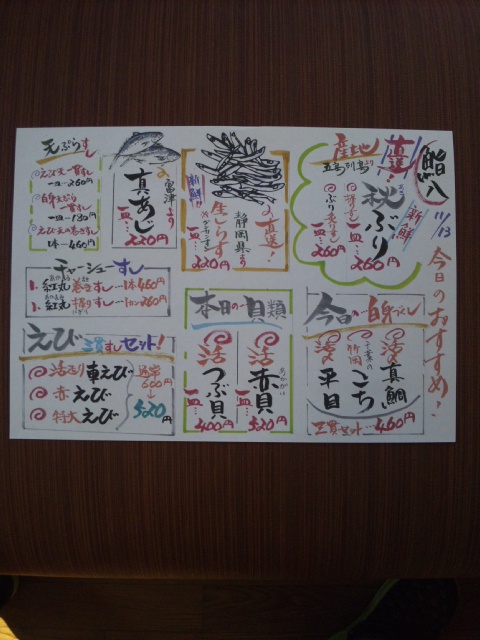 鮨八
11/13
今日のおすすめ!
産地直送!
五島列島より
新鮮
秋ぶり
一皿…260円
ぶり
一皿…260円
直送!
静岡県より
新鮮!!
生しらす
※グンカンすし
一皿…220円
富津より
真あじ
一皿…220円
天ぷらすし
一皿…260円
一皿…130円
1本…460円
チャーシューすし
1.紅丸巻きすし…1本460円
1.紅丸握りすし…260円
今日の白身づくし
活真鯛
千葉の竹岡
こち
活平目
三貫セット…460円
本日の貝類
活赤貝
あかがい
一皿…520円
活つぶ貝
一皿…400円
えび三貫すしセット!
活〆り車えび
赤えび
特大えび
通常600円
↓
520円